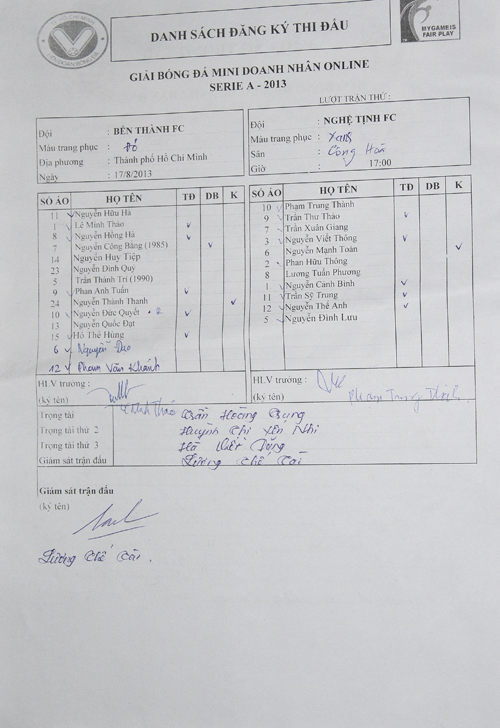 DANH SÁCH ĐĂNG KÝ THI ĐẤU
MY GAME IS
FAIR PLAY
GIẢI BÓNG ĐÁ MINI DOANH NHÂN ONLINE
SERIE A - 2013
LƯỢT TRẬN THỨ :
Đội : BẾN THÀNH FC
Màu trang phục : Đỏ
Địa phương : Thành phố Hồ Chí Minh
Ngày : 17/8/2013
Đội : NGHỆ TỊNH FC
Màu trang phục : Xanh
Sân : Cộng Hoà
Giờ : 17:00
SỐ ÁO HỌ TÊN TĐ DB K
11 Nguyễn Hữu Hà
1 Lê Minh Thảo
8 Nguyễn Hồng Hà
7 Nguyễn Công Bằng (1985)
14 Nguyễn Huy Tiệp
23 Nguyễn Đình Quý
5 Trần Thành Trí (1990)
9 Phan Anh Tuấn
24 Nguyễn Thành Thanh
10 Nguyễn Đức Quyết
13 Nguyễn Quốc Đạt
15 Hồ Thế Hùng
6 Nguyễn Đạo
12 Phạm Văn Khánh
HLV trưởng :
(ký tên)
SỐ ÁO HỌ TÊN TĐ DB K
10 Phạm Trung Thành
9 Trần Thư Thảo
7 Trần Xuân Giang
3 Nguyễn Viết Thông
6 Nguyễn Mạnh Toàn
2 Phan Hữu Thông
8 Lương Tuấn Phương
1 Nguyễn Cảnh Bính
11 Trần Sỹ Trung
12 Nguyễn Thế Anh
5 Nguyễn Đình Lưu
HLV trưởng :
(ký tên) Phạm Trung Thành
Trọng tài Trần Hoàng
Trọng tài thứ 2 Huỳnh Chí Yên Nhi
Trọng tài thứ 3 Hà Việt Dũng
Giám sát trận đấu Lương Chế Tài
Giám sát trận đấu
(ký tên)
Lương Chế Tài.